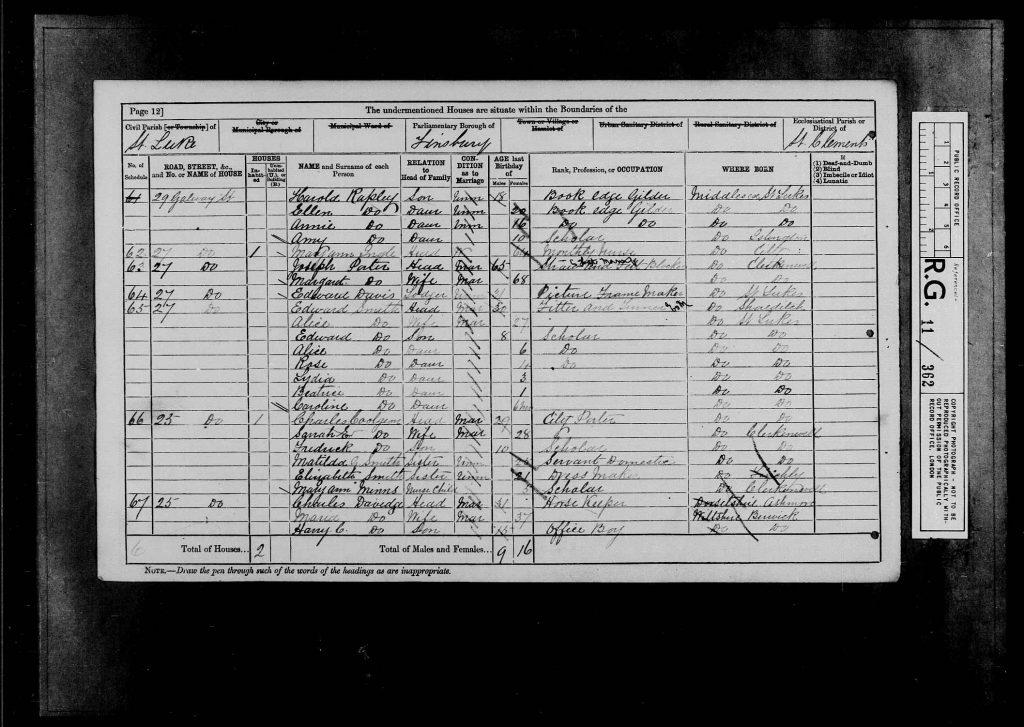 Page 12]
The undermentioned Houses are situate within the Boundaries of the
Civil Parish [or Township] of
City or Municipal Borough of
Municipal Ward of
Parliamentary Borough of
Town or Village or Hamlet of
Urban Sanitary District of
Rural Sanitary District of
Ecclesiastical Parish or District of
St Luke
Finsbury
St Clements
No. of Schedule
ROAD, STREET, &c., and No. or NAME of HOUSE
HOUSES
Inhabited
Uninhabited (U.), or Building (B.)
NAME and Surname of each Person
RELATION to Head of Family
CONDITION as to Marriage
AGE last Birthday of
Males
Females
Rank, Profession, or OCCUPATION
WHERE BORN
If
(1) Deaf-and-Dumb
(2) Blind
(3) Imbecile or Idiot
(4) Lunatic
61 29 Galway St Harold Rapley Son Unm 18 Book edge Gilder Middlesex St Lukes
Ellen Do Daur Unm 20 Book edge Gilder Do Do
Annie Do Daur Unm 16 Do Do Do Do
Amy Do Daur 10 Scholar Do Islington
62 27 Do 1 Mary Ann Head 64 Monthly Nurse Do
63 27 Do Joseph Porter Head Mar 65 Straw and Blocker Do Clerkenwell
Margaret Do Wife Mar 68
64 27 Do Edward Davis Lodger Picture Frame Maker Do St Lukes
65 27 Do Edward Smith Head Mar Fitter and Do Shoreditch
Alice Do Wife Mar 27 Do St Lukes
Edward Do Son 8 Scholar Do Do
Alice Do Daur 6 Do Do Do
Rose Do Daur Do Do Do
Lydia Do Daur 3 Do Do
Beatrice Do Daur 1 Do Do
Caroline Do Daur Do Do
66 25 Do Charles Head Mar City Porter Do Do
Sarah E Do Wife Mar 28 Do Clerkenwell
Fredrick Do Son 10 Scholar Do Do
Matilda Smith Sister Unm Servant Domestic Do Do
Elizabeth Smith Sister Unm 21 Dress Maker Do
Mary Ann Minns Nurse Child Scholar Do Clerkenwell
67 25 Do Charles Davidge Head Mar 31 Horse Keeper Dorsetshire Ashmore
Maria Do Wife Mar 37 Wiltshire Berwick
Harry C. Do Son 13 Office Boy Do Do
Total of Houses... 2
Total of Males and Females... 9 16
NOTE.—Draw the pen through such of the words of the headings as are inappropriate.
PUBLIC RECORD OFFICE
1 2 3 4 5 6
Reference:-
R.G. 11/362
COPYRIGHT PHOTOGRAPH - NOT TO BE REPRODUCED PHOTOGRAPHICALLY WITHOUT PERMISSION OF THE PUBLIC RECORD OFFICE, LONDON